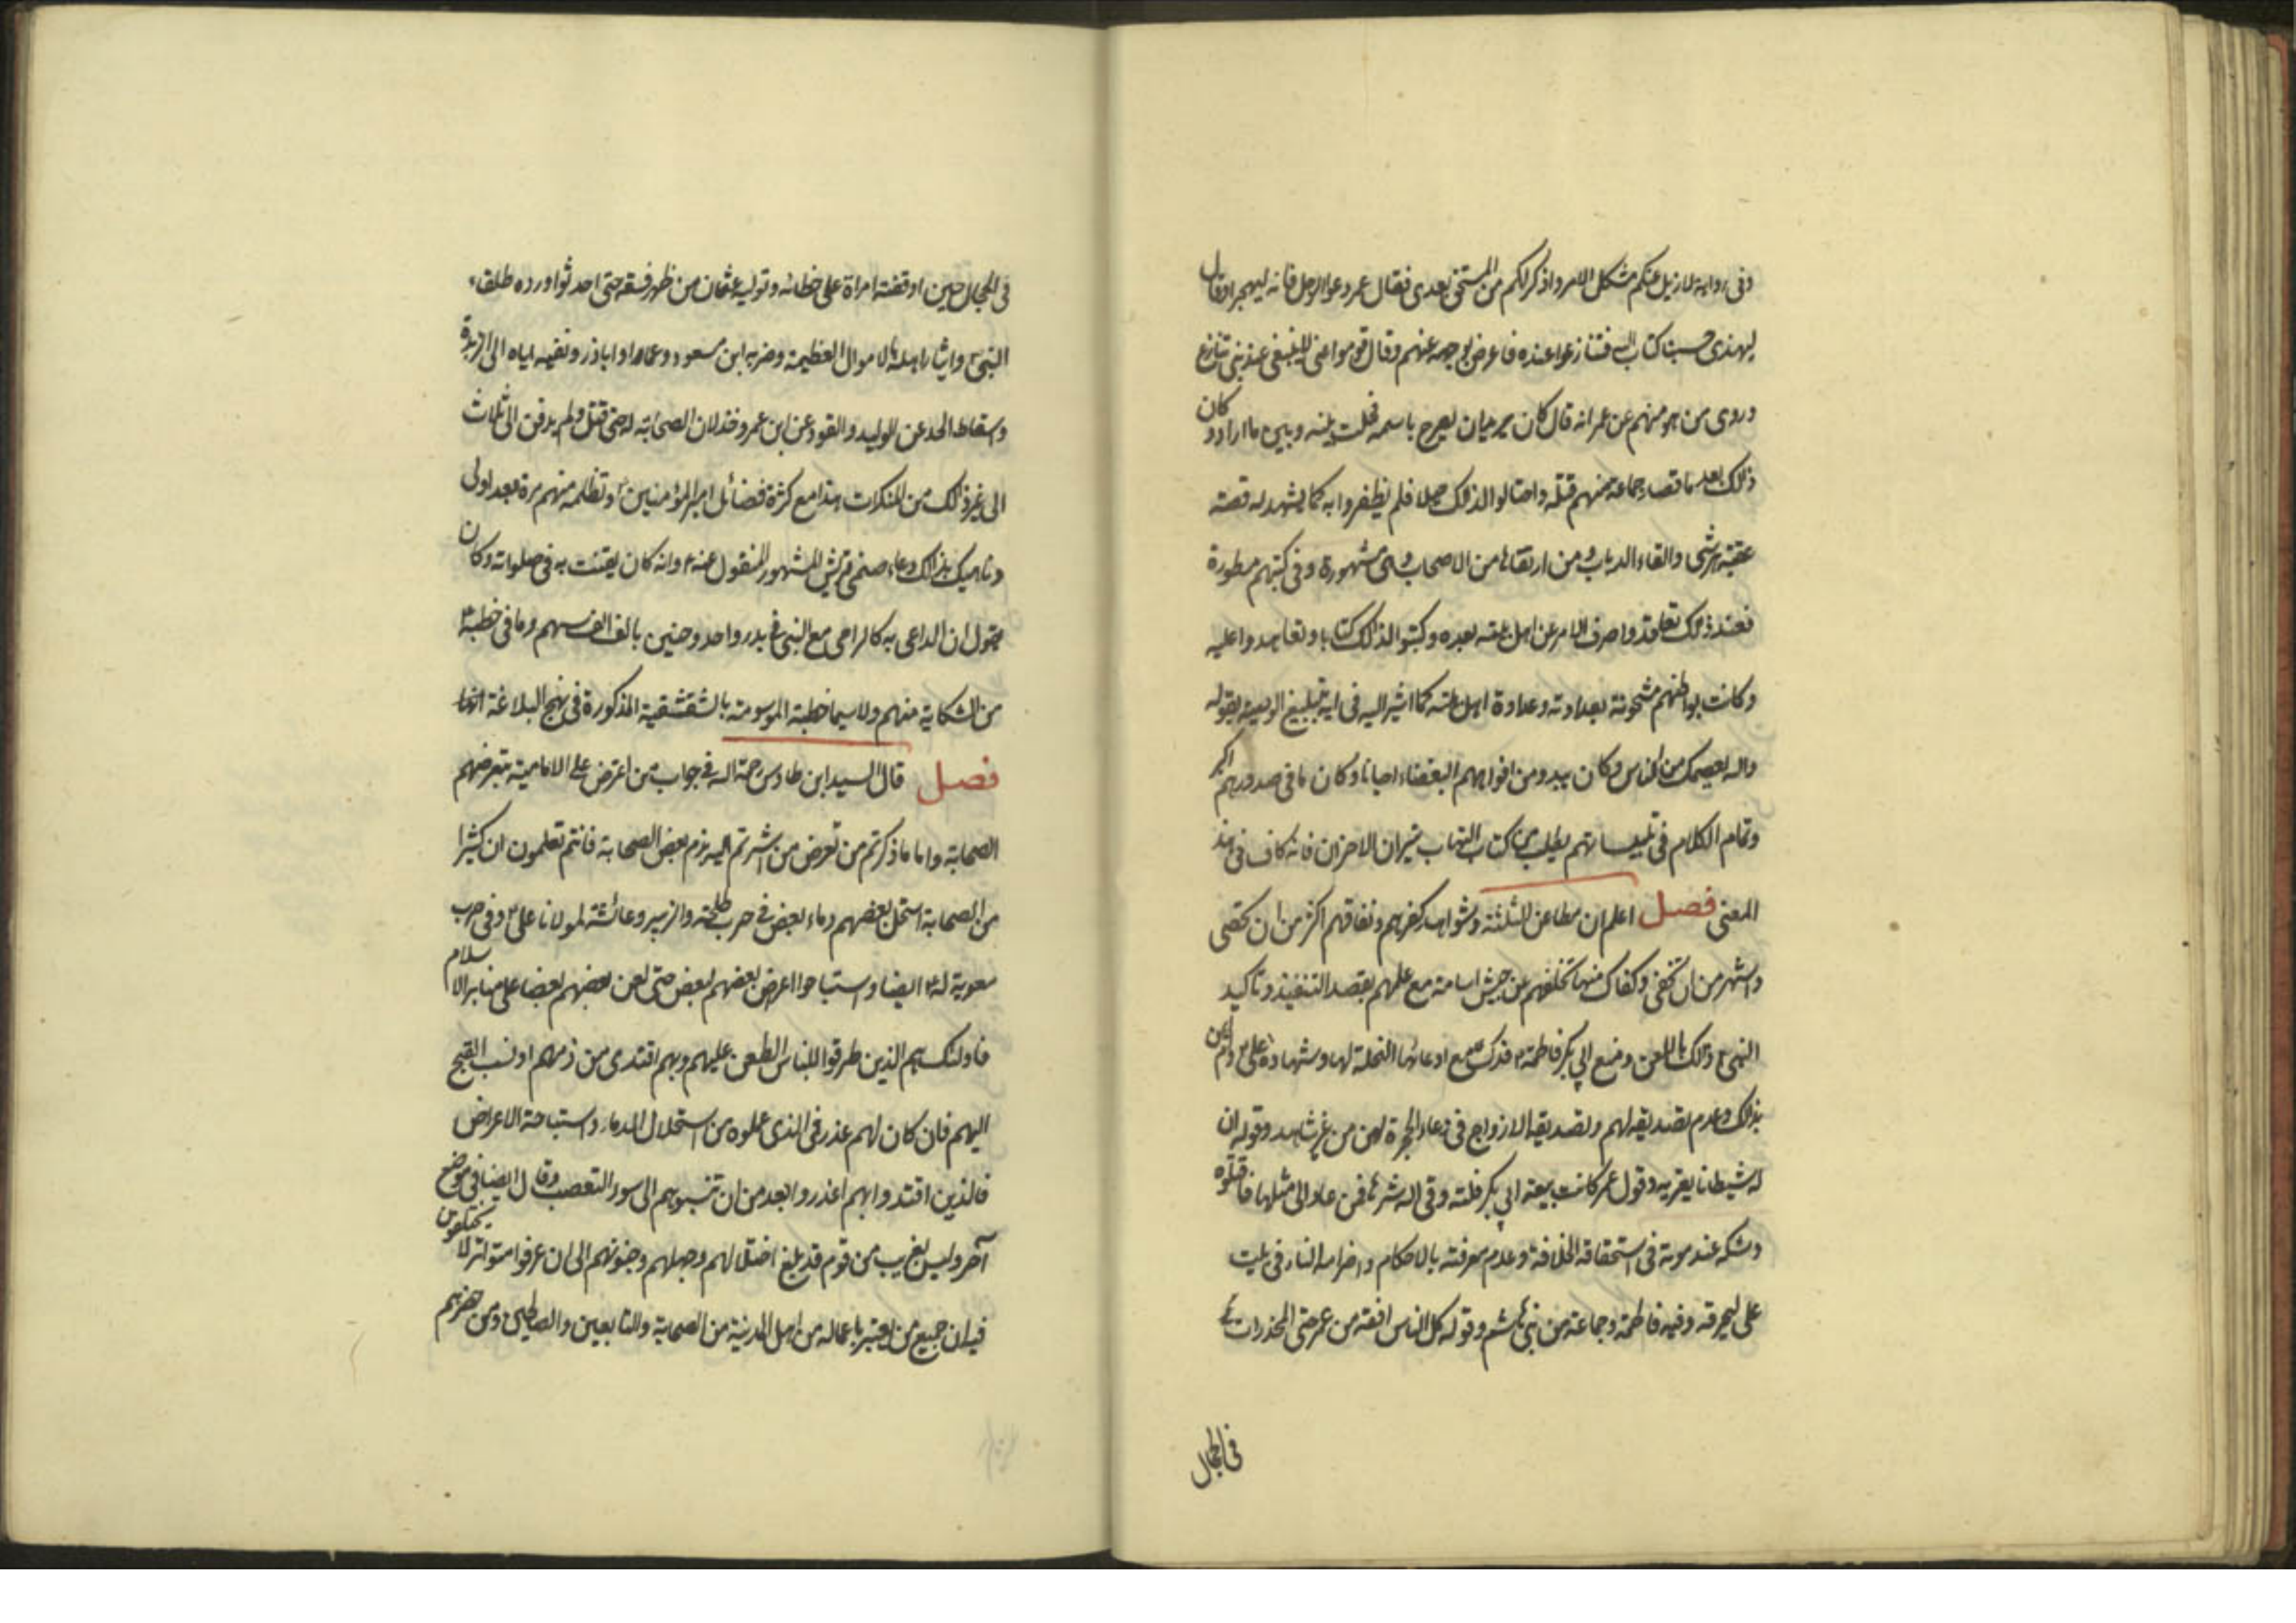 وفى رواية لازيل عنكم مشكل الامر واذكر لكم من المستحق بعدى فقال عمر دعوا الرجل فانه ليهجر او قال
ليهذى حسبنا كتاب الله فتنازعوا عنده فاعرض بوجهه عنهم وقال قوموا عنى لا ينبغى عند نبى تنازع
وروى من هو منهم عن عمر انه قال كان يريد ان يصرح باسمه فحلت بينه وبين ما اراد وكان
ذلك بعد ما قصد جماعة منهم قتله واحتالوا لذلك حيلا فلم يظفروا به كما يشهد له قصة
عقبة هرشى والقاء الدباب ومن ارتقاها من الاصحاب وهى مشهورة وفى كتبهم مسطورة
فعند ذلك تعاقدوا صرف الامر عن اهل بيته بعده وكتبوا لذلك كتابا وتعاهدوا عليه
وكانت بواطنهم مشحونة بعداوته وعداوة اهل بيته كما اشير اليه فى اية تبليغ الوصية بقوله
والله يعصمك من الناس وكان يبدو من افواههم البغضاء احيانا وكان ما فى صدورهم اكبر
وتمام الكلام فى تلبيساتهم يطلب من كتاب التهاب نيران الاحزان فانه كاف فى هذا
المعنى فصل اعلم ان مطاعن الثلثة وشواهد كفرهم ونفاقهم اكثر من ان تحصى
واشهر من ان تخفى وكفاك منها تخلفهم عن جيش اسامة مع علمهم بقصد التنفيذ وتاكيد
النبى ذلك باللعن ومنع ابى بكر فاطمة فدك مع ادعائها النحلة لها وشهادة على وام ايمن
بذلك وعدم تصديقه لهم وتصديقه الازواج فى ادعاء الحجرة لهن من غير شاهد وقوله ان
له شيطانا يعتريه وقول عمر كانت بيعة ابى بكر فلتة وقى الله شرها فمن عاد الى مثلها فاقتلوه
وشكه عند موته فى استحقاقه الخلافة وعدم معرفته بالاحكام واضرامه النار فى بيت
على ليحرقه وفيه فاطمة وجماعة من بنى هاشم وقوله كل الناس افقه من عمر حتى المخدرات
فى الحجال
فى الحجال حين اوقفته امراة على خطائه وتوليه عثمان من ظهر فسقه حتى احدثوا ورده طلقاء
النبى وايثاره اهله بالاموال العظيمة وضربه ابن مسعود وعمارا واباذر ونفيه اياه الى الربذة
واسقاط الحد عن الوليد والقود عن ابن عمر وخذلان الصحابة له حتى قتل ولم يدفن الى ثلاث
الى غير ذلك من المنكرات هذا مع كثرة فضائل امير المؤمنين وتظلمه منهم مرة بعد اولى
وناهيك بذلك دعاء صنمى قريش المشهور المنقول عنه وانه كان يقنت به فى صلواته وكان
يقول ان الداعى به كالرامى مع النبى فى بدر واحد وحنين بالف الف سهم وما فى خطبه
من الشكاية منهم ولا سيما خطبته الموسومة بالشقشقية المذكورة فى نهج البلاغة
فصل قال السيد ابن طاوس رحمه الله فى جواب من اعترض على الامامية بتعرضهم
الصحابة واما ما ذكرتم من تعرض من اشرتم اليه بذم بعض الصحابة فانتم تعلمون ان كثيرا
من الصحابة استحل بعضهم دماء بعض فى حرب طلحة والزبير وعائشة لمولانا على وفى حرب
معوية له ايضا واستباحوا اعراض بعضهم لبعض حتى لعن بعضهم بعضا على منابر الاسلام
فاولئك هم الذين طرقوا للناس الطعن عليهم وبهم اقتدى من ذمهم او نسب القبح
اليهم فان كان لهم عذر فى الذى عملوه من استحلال الدماء واستباحة الاعراض
فالذين اقتدوا بهم اعذر وابعد من ان تنسبوهم الى سوء التعصب وقال ايضا فى موضع
آخر وليس بغريب من قوم قد بلغ اختلالهم وجهلهم وجنونهم الى ان عرفوا متواترا لا يختلفون
فيه ان جميع من يعتبر باعماله من اهل المدينة من الصحابة والتابعين والصالحين ومن حضرهم